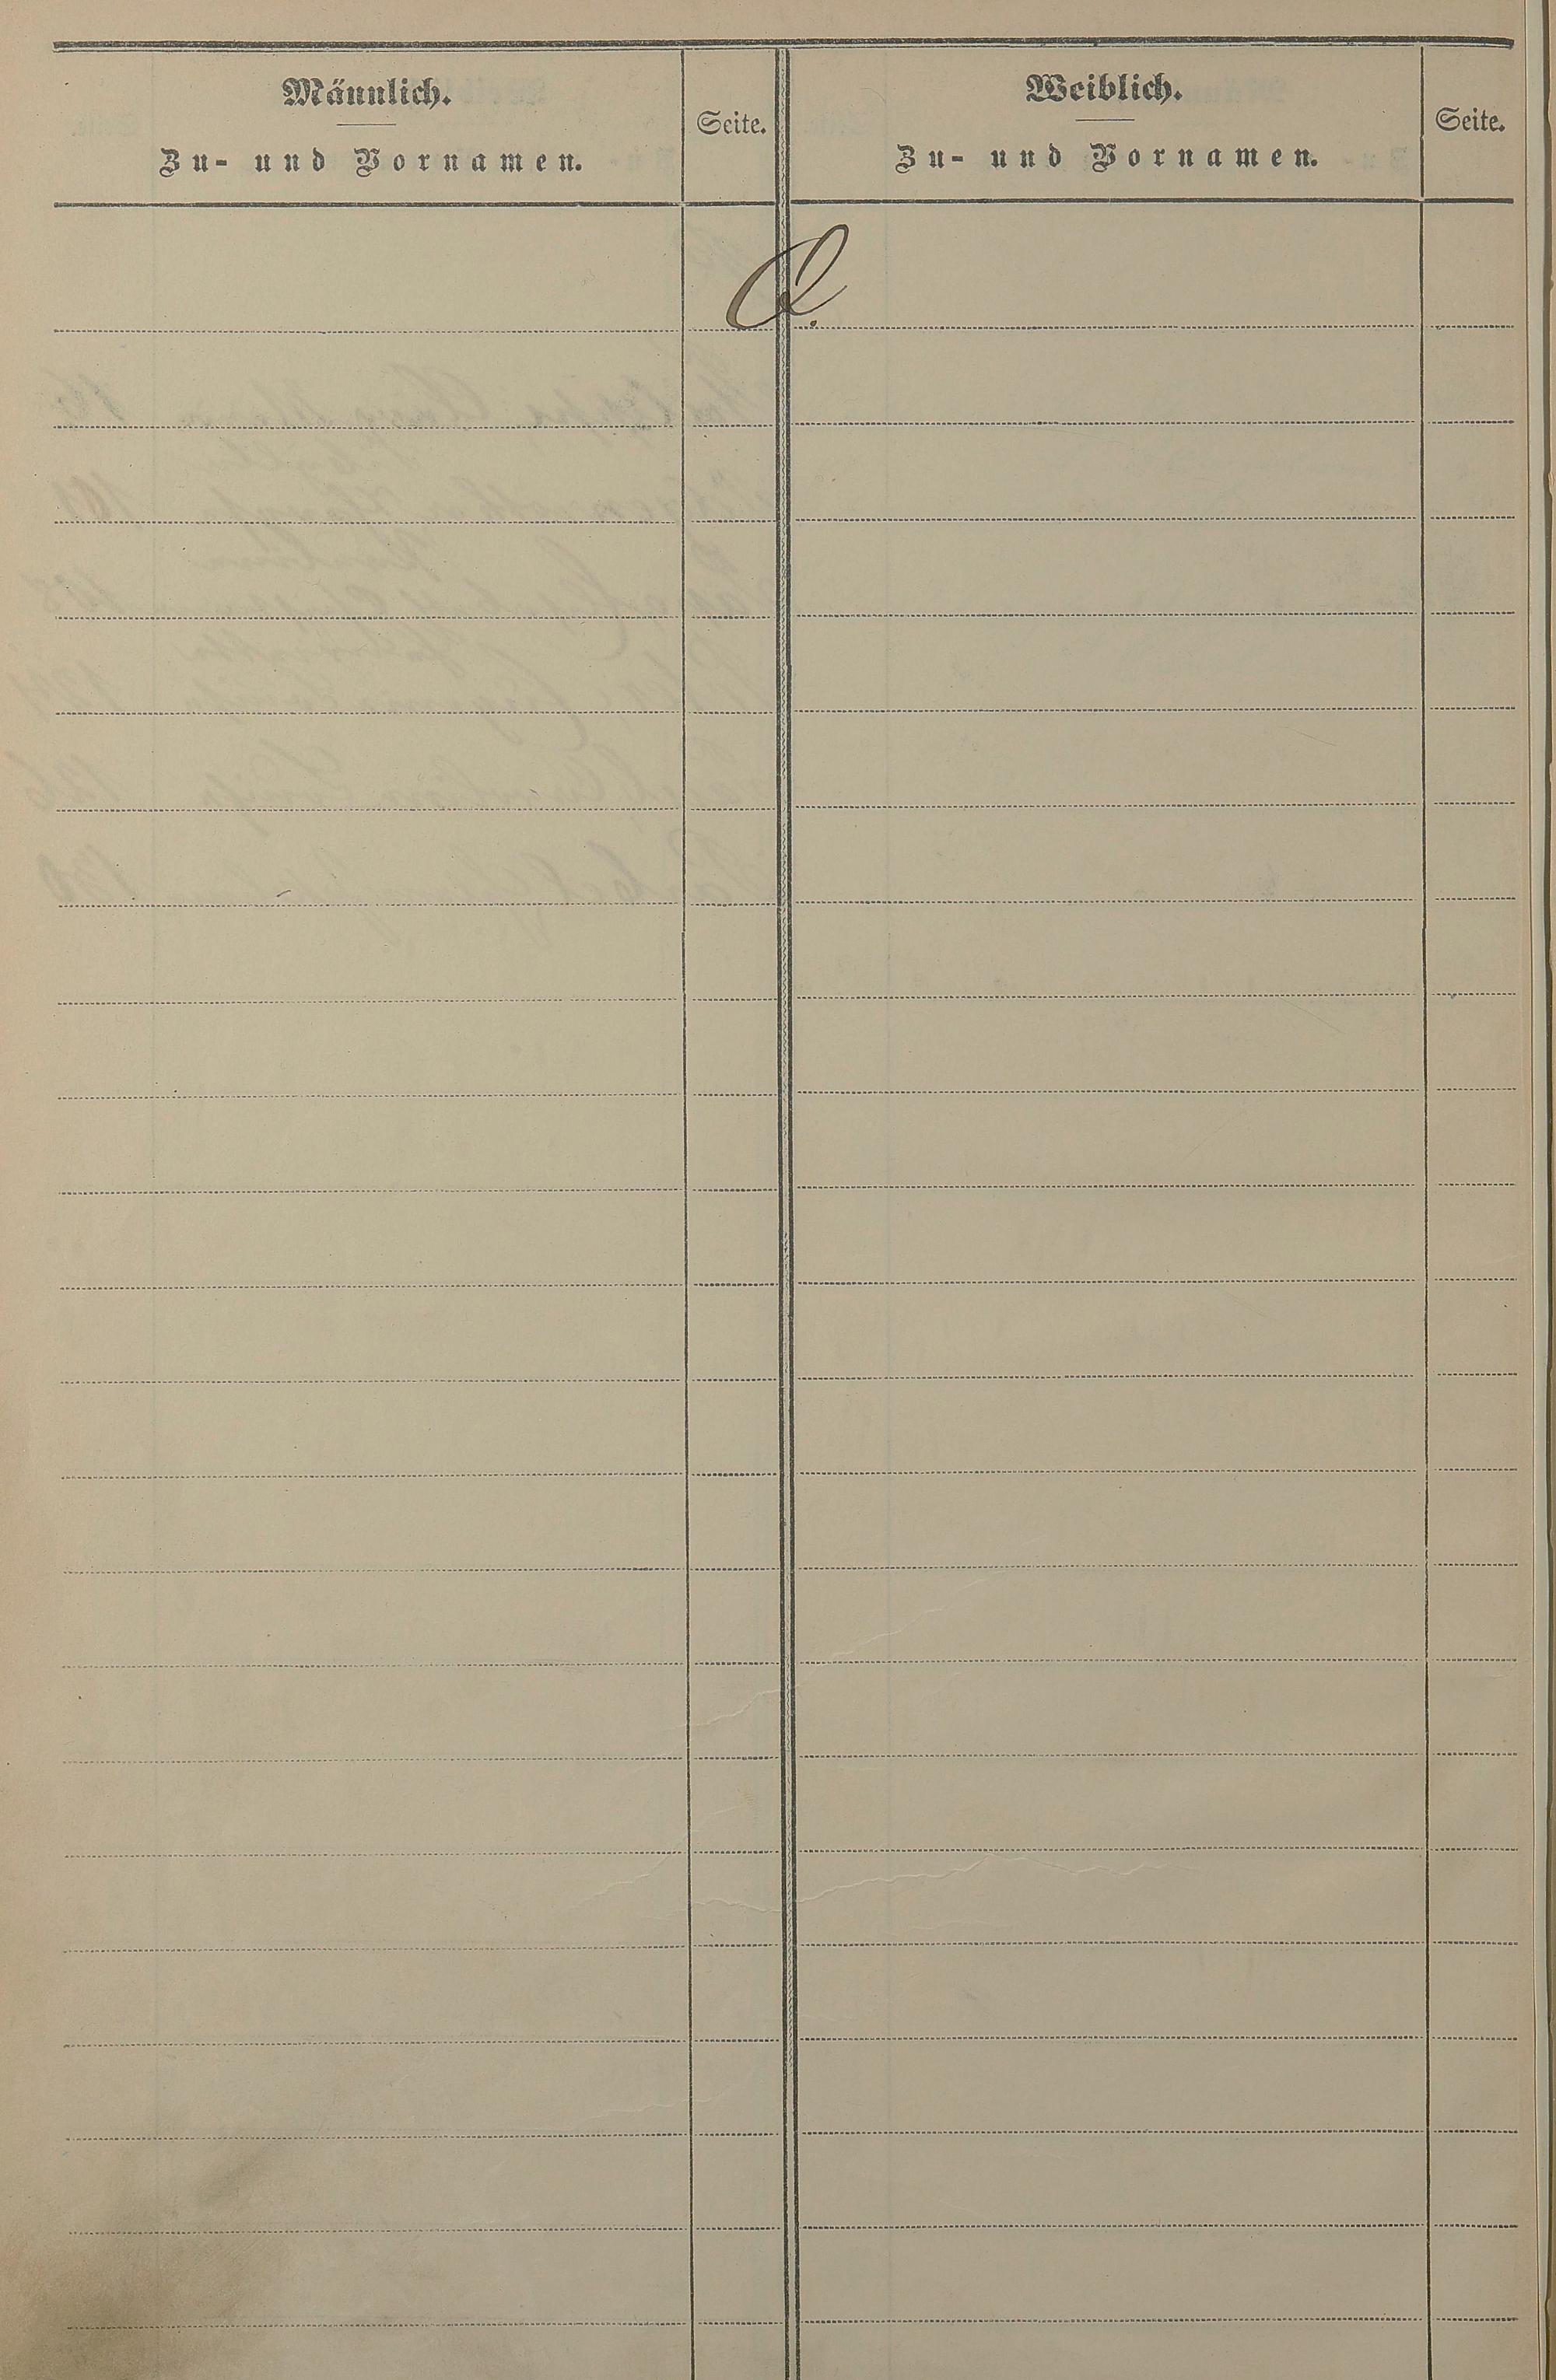 Männlich.
Zu- und Vornamen.
Seite.
Weiblich.
Zu- und Vornamen.
Seite.
Q.